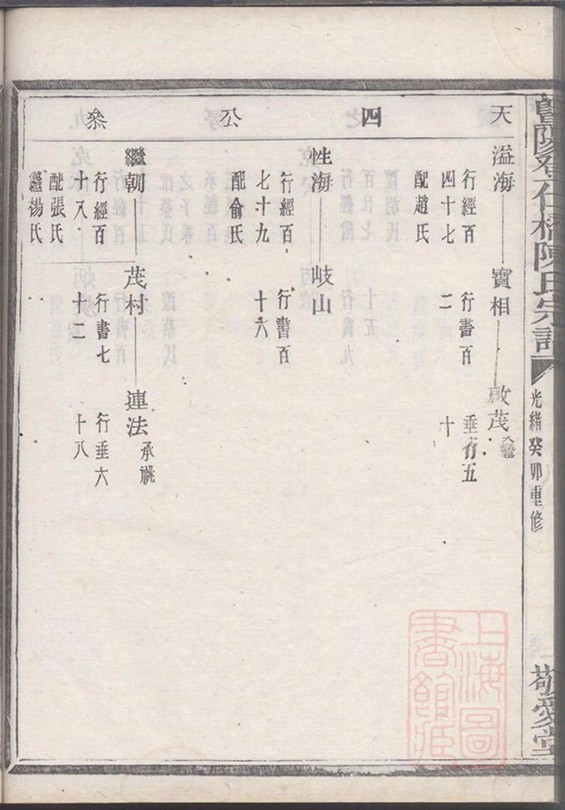 曁陽孝仁橋陳氏宗譜
光緒癸卯重修
敬愛堂
天 四 公 叅
溢海 寶相 啟茂
行經百四十七 行書百二 垂行五十
配趙氏
性海 岐山
行經百七十九 行書百十六
配俞氏
繼朝 茂村 連法 承祧
行經百十八 行書七十二 行垂六十八
配張氏
繼楊氏
上海圖書館藏